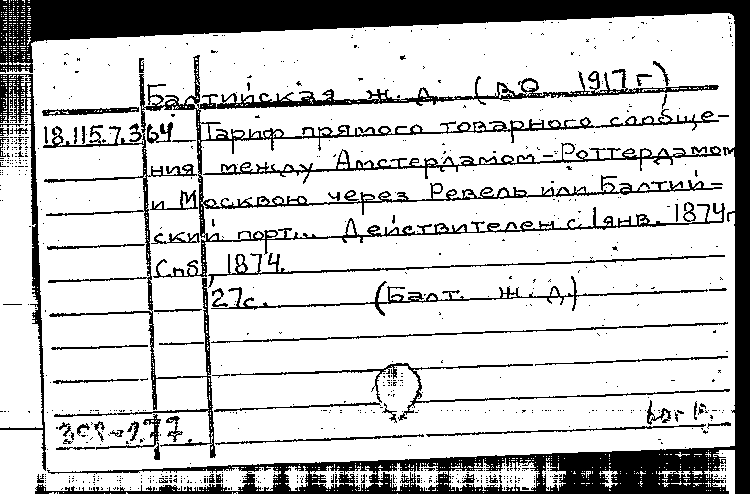 Балтийская ж. д. (до 1917 г)
18.115.7.364 Тариф прямого товарного сообще-
ния между Амстердамом-Роттердамом
и Москвою через Ревель или Балтий=
ский порт... Действителен с 1 янв. 1874г
Спб, 1874.
27с. (Балт. ж. д.)